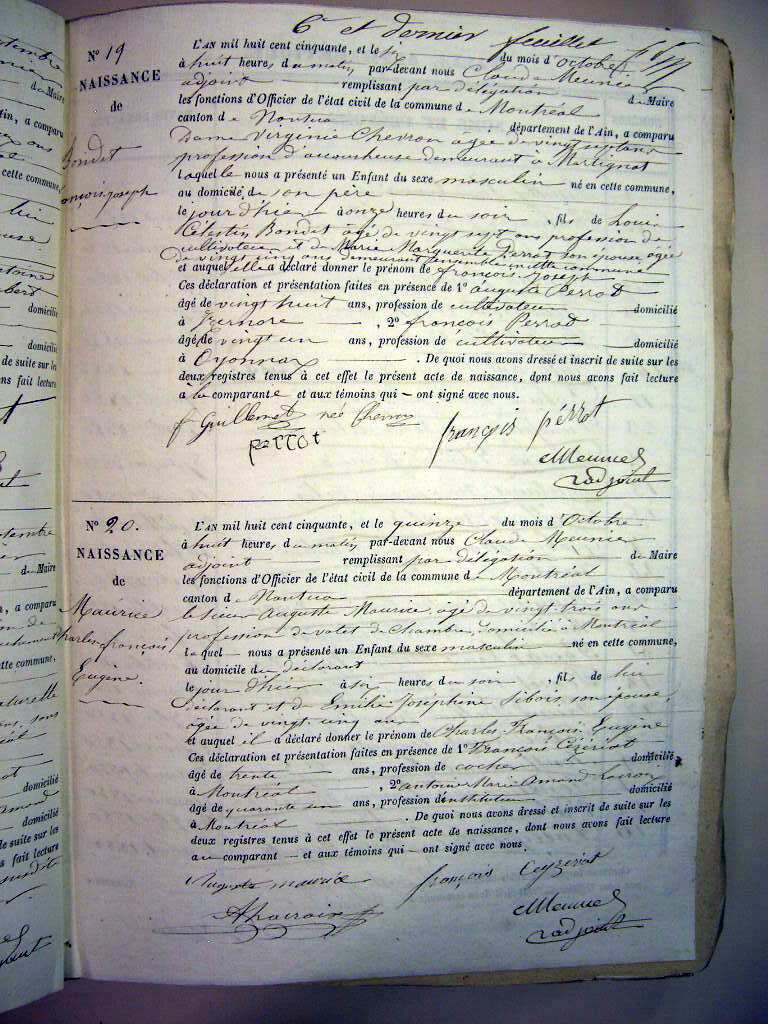 6e et dernier feuillet
No 19
NAISSANCE
de
Bondet
François Joseph
L'AN mil huit cent cinquante, et le six du mois d'Octobre
à huit heures du matin par-devant nous Claude Meunier
adjoint remplissant par délégation de Maire
les fonctions d'Officier de l'état civil de la commune de Montréal
canton de Nantua département de l'Ain, a comparu
Dame Virginie Chevron agée de vingt sept ans
profession d'accoucheuse demeurant à Martignat
laquelle nous a présenté un Enfant du sexe masculin né en cette commune,
au domicile de son père
le jour d'hier à onze heures du soir, fils de Louis
Célestin Bondet agé de vingt sept ans profession de
cultivateur et de Marie Marguerite Perrot son épouse agée
de vingt cinq ans demeurant ensemble en cette commune
et auquel elle a déclaré donner le prénom de François Joseph
Ces déclaration et présentation faites en présence de 1o Auguste Perrot
âgé de vingt huit ans, profession de cultivateur domicilié
à Izernore, 2o François Perrot
âgé de vingt un ans, profession de cultivateur domicilié
à Oyonnax. De quoi nous avons dressé et inscrit de suite sur les
deux registres tenus à cet effet le présent acte de naissance, dont nous avons fait lecture
à la comparante et aux témoins qui ont signé avec nous.
f Guillemot née Chevron
perrot
françois pérrot
Meunier
adjoint
No 20.
NAISSANCE
de
Maurice
Charles françois
Eugène.
L'AN mil huit cent cinquante, et le quinze du mois d'Octobre
à huit heures du matin par-devant nous Claude Meunier
adjoint remplissant par délégation de Maire
les fonctions d'Officier de l'état civil de la commune de Montréal
canton de Nantua département de l'Ain, a comparu
le sieur Auguste Maurice, agé de vingt trois ans
profession de valet de Chambre, domicilié à Montréal
lequel nous a présenté un Enfant du sexe masculin né en cette commune,
au domicile du déclarant
le jour d'hier à six heures du soir, fils de lui
déclarant et de Emilie Joséphine Sibois, son épouse,
agée de vingt cinq ans
et auquel il a déclaré donner le prénom de Charles, François, Eugène
Ces déclaration et présentation faites en présence de 1o François Ceyzériat
âgé de trente ans, profession de cocher domicilié
à Montréal, 2o antoine Marie Amand
âgé de quarante un ans, profession d'instituteur domicilié
à Montréal. De quoi nous avons dressé et inscrit de suite sur les
deux registres tenus à cet effet le présent acte de naissance, dont nous avons fait lecture
au comparant et aux témoins qui ont signé avec nous.
Auguste maurice
françois Ceyzeriat
Meunier
adjoint